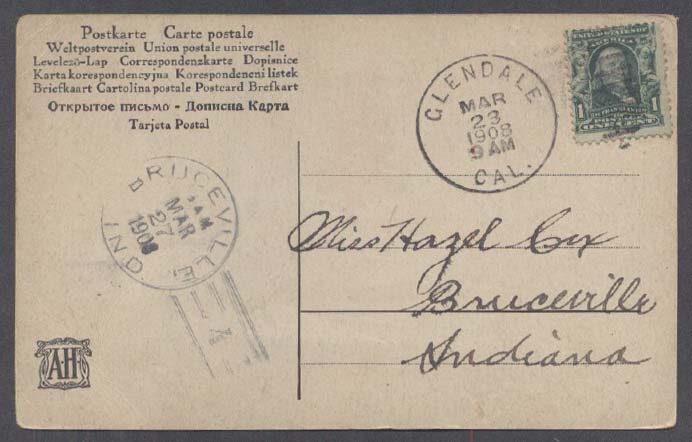 Postkarte Carte postale
Weltpostverein Union postale universelle
Levelező-Lap Correspondenzkarte Dopisnice
Karta korespondencyjna Korespondencni listek
Briefkaart Cartolina postale Postcard Brefkart
Открытое письмо - Дописна Карта
Tarjeta Postal
GLENDALE
MAR
23
1908
9 AM
CAL.
UNITED STATES OF
AMERICA
1 1
ONE CENT
BRUCEVILLE
AM
MAR
27
1908
IND
Miss Hazel Cox
Bruceville
Indiana
A·H